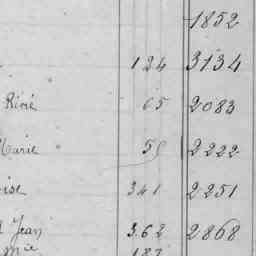 1852
124 3134
Rivié 65 2083
Marie 59 2222
oise 341 2251
Jean 362 2868
187